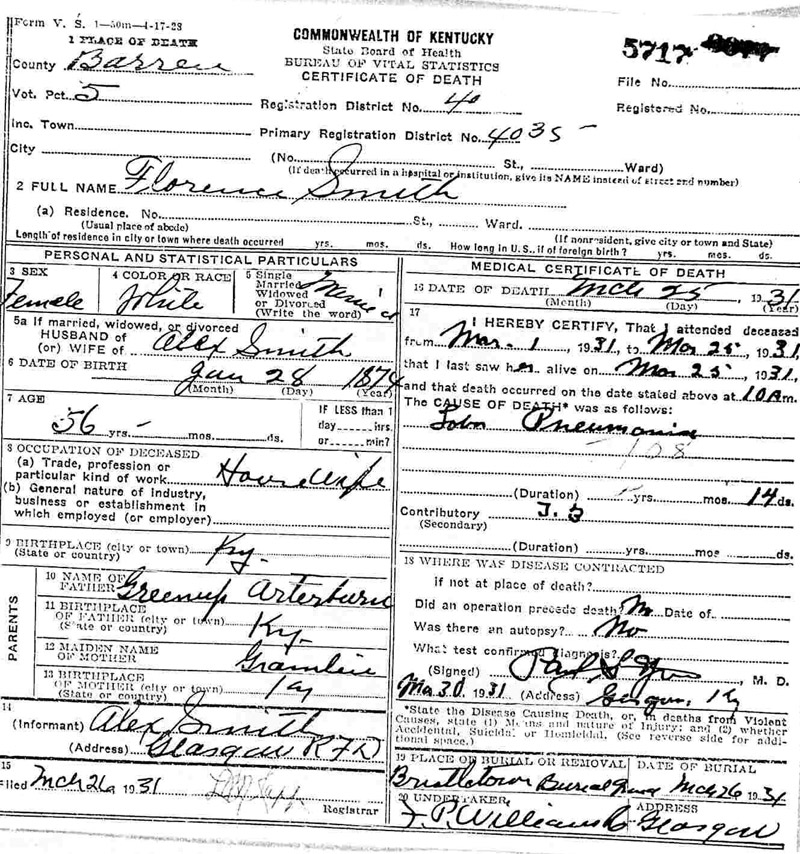 Form V. S. 1—50m—4-17-28
1 PLACE OF DEATH
COMMONWEALTH OF KENTUCKY
State Board of Health
BUREAU OF VITAL STATISTICS
CERTIFICATE OF DEATH
5717
County Barren
File No.
Vot. Pct. 5
Registration District No. 40
Registered No.
Inc. Town
Primary Registration District No. 4035
City
(No. St., Ward)
(If death occurred in a hospital or institution, give its NAME instead of street and number)
2 FULL NAME Florence Smith
(a) Residence. No. St., Ward.
(Usual place of abode) (If nonresident, give city or town and State)
Length of residence in city or town where death occurred yrs. mos. ds. How long in U.S., if of foreign birth? yrs. mos. ds.
PERSONAL AND STATISTICAL PARTICULARS
3 SEX
Female
4 COLOR OR RACE
White
5 Single
Married
Widowed
or Divorced
(Write the word)
5a If married, widowed, or divorced
HUSBAND of
(or) WIFE of Alex Smith
6 DATE OF BIRTH Jan 28 1874
(Month) (Day) (Year)
7 AGE
56 yrs. mos. ds.
IF LESS than 1
day hrs.
or min?
8 OCCUPATION OF DECEASED
(a) Trade, profession or
particular kind of work Housewife
(b) General nature of industry,
business or establishment in
which employed (or employer)
9 BIRTHPLACE (city or town) Ky.
(State or country)
PARENTS
10 NAME OF
FATHER Greenup Arterburn
11 BIRTHPLACE
OF FATHER (city or town)
(State or country) Ky.
12 MAIDEN NAME
OF MOTHER Gramlin
13 BIRTHPLACE
OF MOTHER (city or town)
(State or country) Ky
14
(Informant) Alex Smith
(Address) Glasgow R F D
15
Filed Mch 26 1931
Registrar
MEDICAL CERTIFICATE OF DEATH
16 DATE OF DEATH Mch 25, 1931
(Month) (Day) (Year)
17
I HEREBY CERTIFY, That I attended deceased
from Mar. 1, 1931, to Mar 25, 1931,
that I last saw her alive on Mar 25, 1931,
and that death occurred on the date stated above at 10 Am.
The CAUSE OF DEATH* was as follows:
Lobar Pneumonia
108
(Duration) yrs. mos. 14 ds.
Contributory T. B
(Secondary)
(Duration) yrs. mos. ds.
18 WHERE WAS DISEASE CONTRACTED
if not at place of death?
Did an operation precede death? No Date of
Was there an autopsy? No
What test confirmed diagnosis?
(Signed) Paul S , M. D.
Mar 30, 1931 (Address) Glasgow, Ky
*State the Disease Causing Death, or, in deaths from Violent
Causes, state (1) Means and nature of Injury; and (2) whether
Accidental, Suicidal or Homicidal. (See reverse side for addi-
tional space.)
19 PLACE OF BURIAL OR REMOVAL DATE OF BURIAL
Bristletown Burial Mch 26 1931
20 UNDERTAKER ADDRESS
F. P. Williams Glasgow